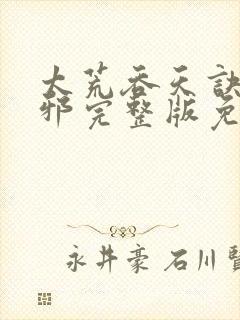 大荒吞天诀
邪完整版免
永井豪 石川賢